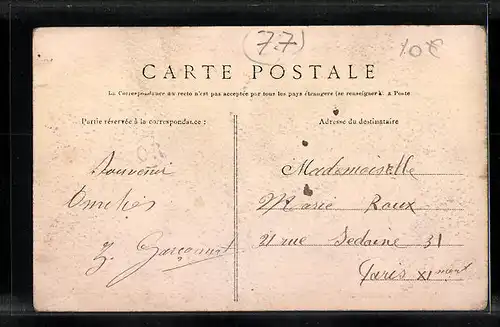 (77)
10€
CARTE POSTALE
La Correspondance au recto n'est pas acceptée par tous les pays étrangers (se renseigner à la Poste
Partie réservée à la correspondance :
Adresse du destinataire
Souvenir
Mademoiselle
Marie Roux
21 rue Sedaine 31
Paris XI